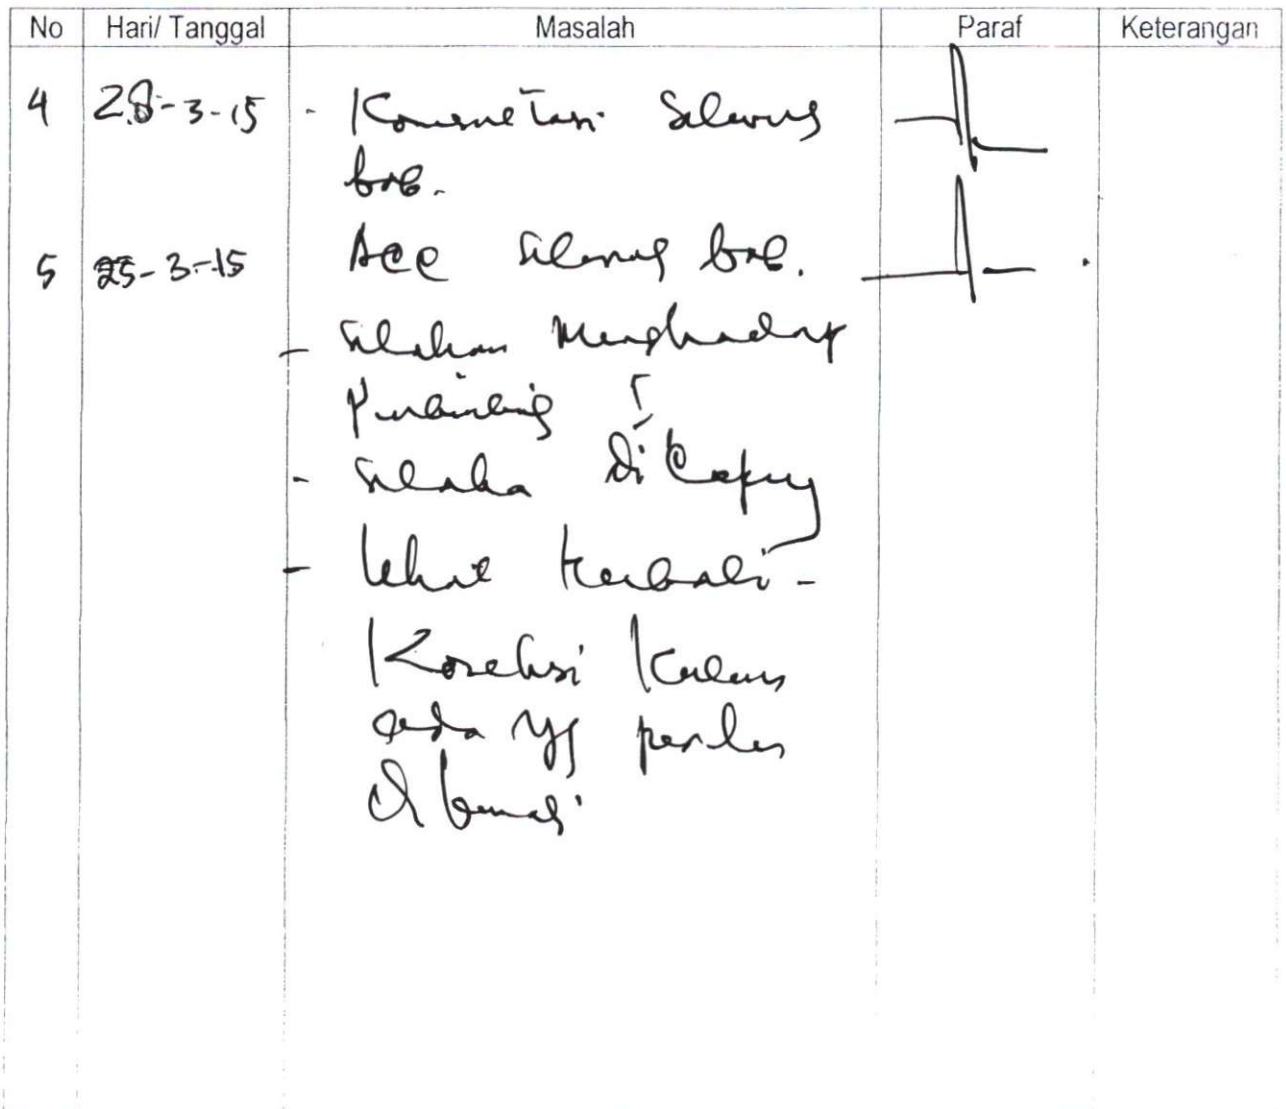 No Hari/ Tanggal Masalah Paraf Keterangan
4 28-3-15 - Konsultasi Seluruh
bab.
5 25-3-15 Acc Seluruh bab.
- Silahkan Menghadap
Pembimbing I
- Silaka di
- Lihat Kembali -
Koreksi Karena
ada yg perlu